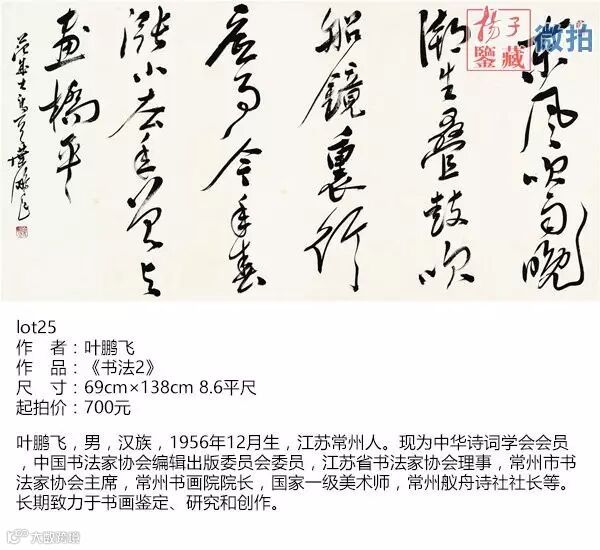 楊子
鑒藏
微拍
东风吹雨晚
潮生疊鼓吹
船鏡裏行
底事今年春
漲小去年曾与
畫橋平
范成大
lot25
作 者：叶鹏飞
作 品：《书法2》
尺 寸：69cm×138cm 8.6平尺
起拍价：700元
叶鹏飞，男，汉族，1956年12月生，江苏常州人。现为中华诗词学会会员
，中国书法家协会编辑出版委员会委员，江苏省书法家协会理事，常州市书
法家协会主席，常州书画院院长，国家一级美术师，常州舣舟诗社社长等。
长期致力于书画鉴定、研究和创作。
大数跨境